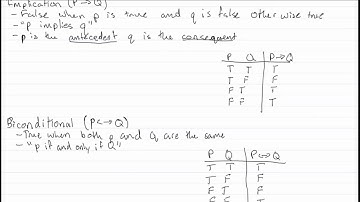 Implication (P→Q)
- False when p is true and q is false otherwise true
- "p implies q"
- p is the antecedent q is the consequent
P Q P→Q
T T T
T F F
F T T
F F T
Biconditional (P↔Q)
- True when both p and Q are the same
- "p if and only if Q"
P Q P↔Q
T T T
T F F
F T F